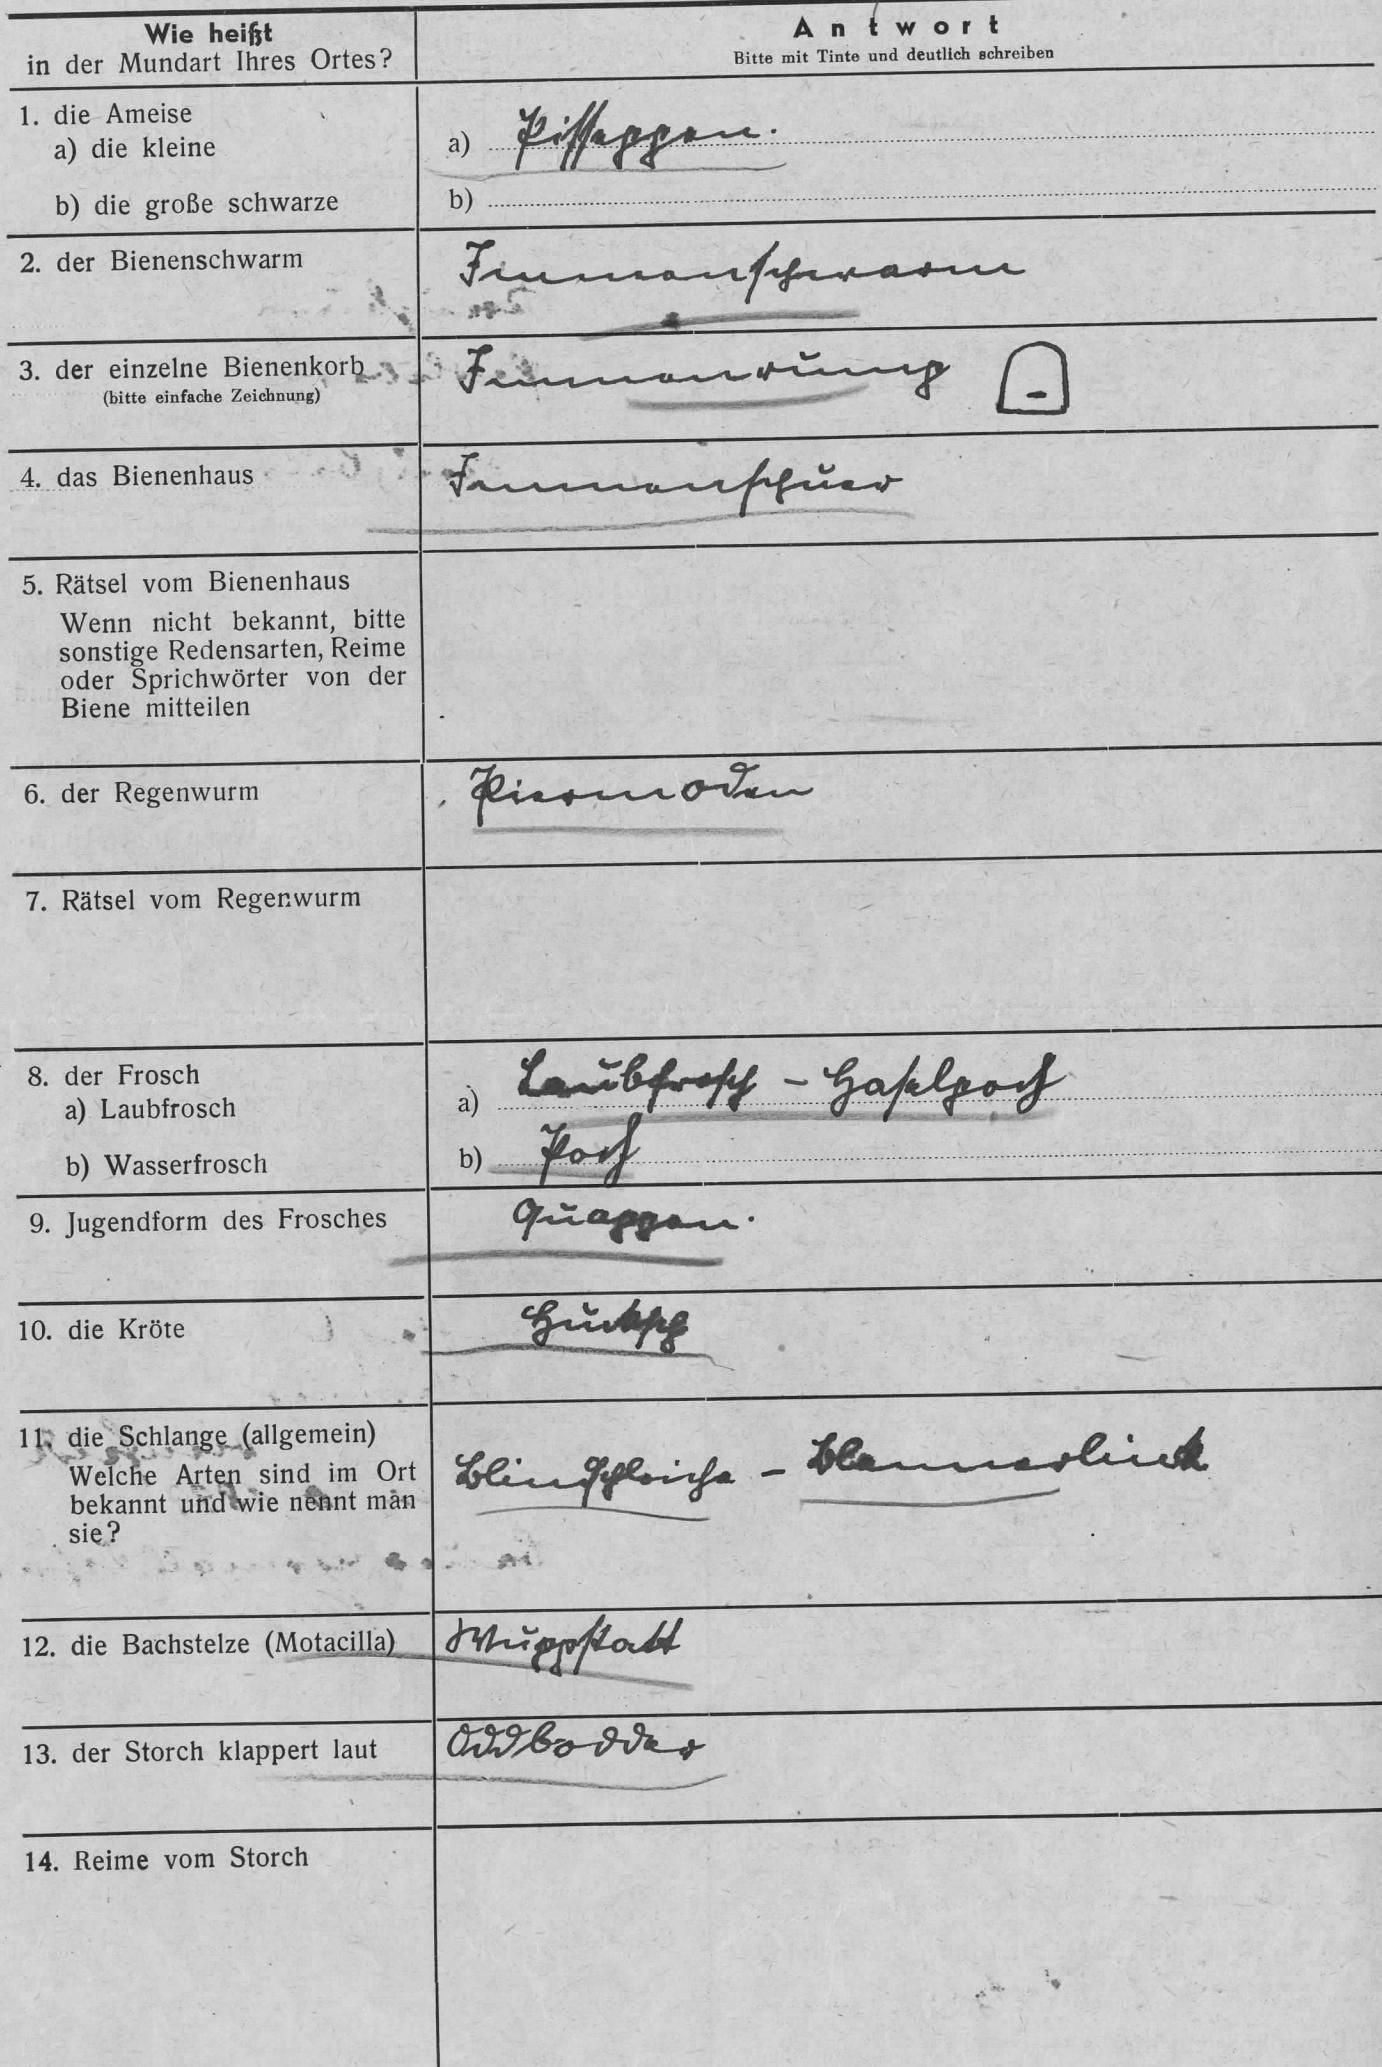 Wie heißt
in der Mundart Ihres Ortes?
Antwort
Bitte mit Tinte und deutlich schreiben
1. die Ameise
a) die kleine
a) Pisseppen.
b) die große schwarze
b)
2. der Bienenschwarm
Immenschwarm
3. der einzelne Bienenkorb
(bitte einfache Zeichnung)
Immenrump
4. das Bienenhaus
Immenschuer
5. Rätsel vom Bienenhaus
Wenn nicht bekannt, bitte
sonstige Redensarten, Reime
oder Sprichwörter von der
Biene mitteilen
6. der Regenwurm
Piermoden
7. Rätsel vom Regenwurm
8. der Frosch
a) Laubfrosch
a) Laubfrosch – Haselpoch
b) Wasserfrosch
b) Poch
9. Jugendform des Frosches
Quappen.
10. die Kröte
11. die Schlange (allgemein)
Welche Arten sind im Ort
bekannt und wie nennt man
sie?
Blindschleiche –
12. die Bachstelze (Motacilla)
Wuppstatt
13. der Storch klappert laut
Oddbodder
14. Reime vom Storch